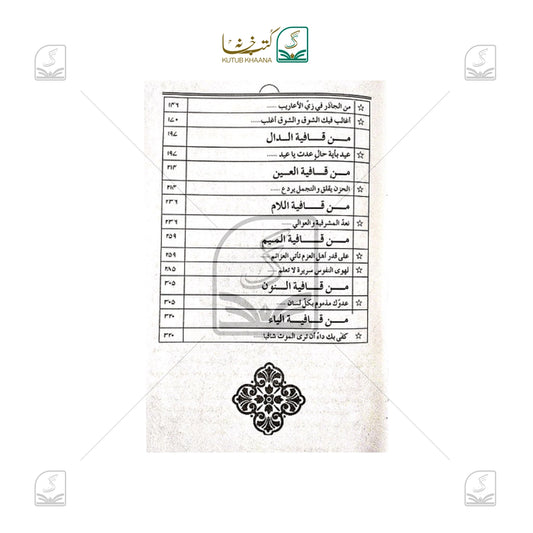 کتب خانہ
KUTUB KHAANA
من الجآذر في زيّ الأعاريب ...... ١٣٦
أغالب فيك الشوق والشوق أغلب ...... ١٧٠
من قافية الدال ١٩٧
عيد بأية حالٍ عدت يا عيد ...... ١٩٧
من قافية العين ٢١٣
الحزن يقلق والتجمل يردع ...... ٢١٣
من قافية اللام ٢٣٦
نعدّ المشرفية والعوالي ...... ٢٣٦
من قافية الميم ٢٥٩
على قدر أهل العزم تأتي العزائم ...... ٢٥٩
لهوى النفوس سريرة لا تعلم ...... ٢٨٥
من قافية النون ٣٠٥
عدوّك مذموم بكلّ لسان ...... ٣٠٥
من قافية الياء ٣٢٠
كفى بك داءً أن ترى الموت شافيا ٣٢٠